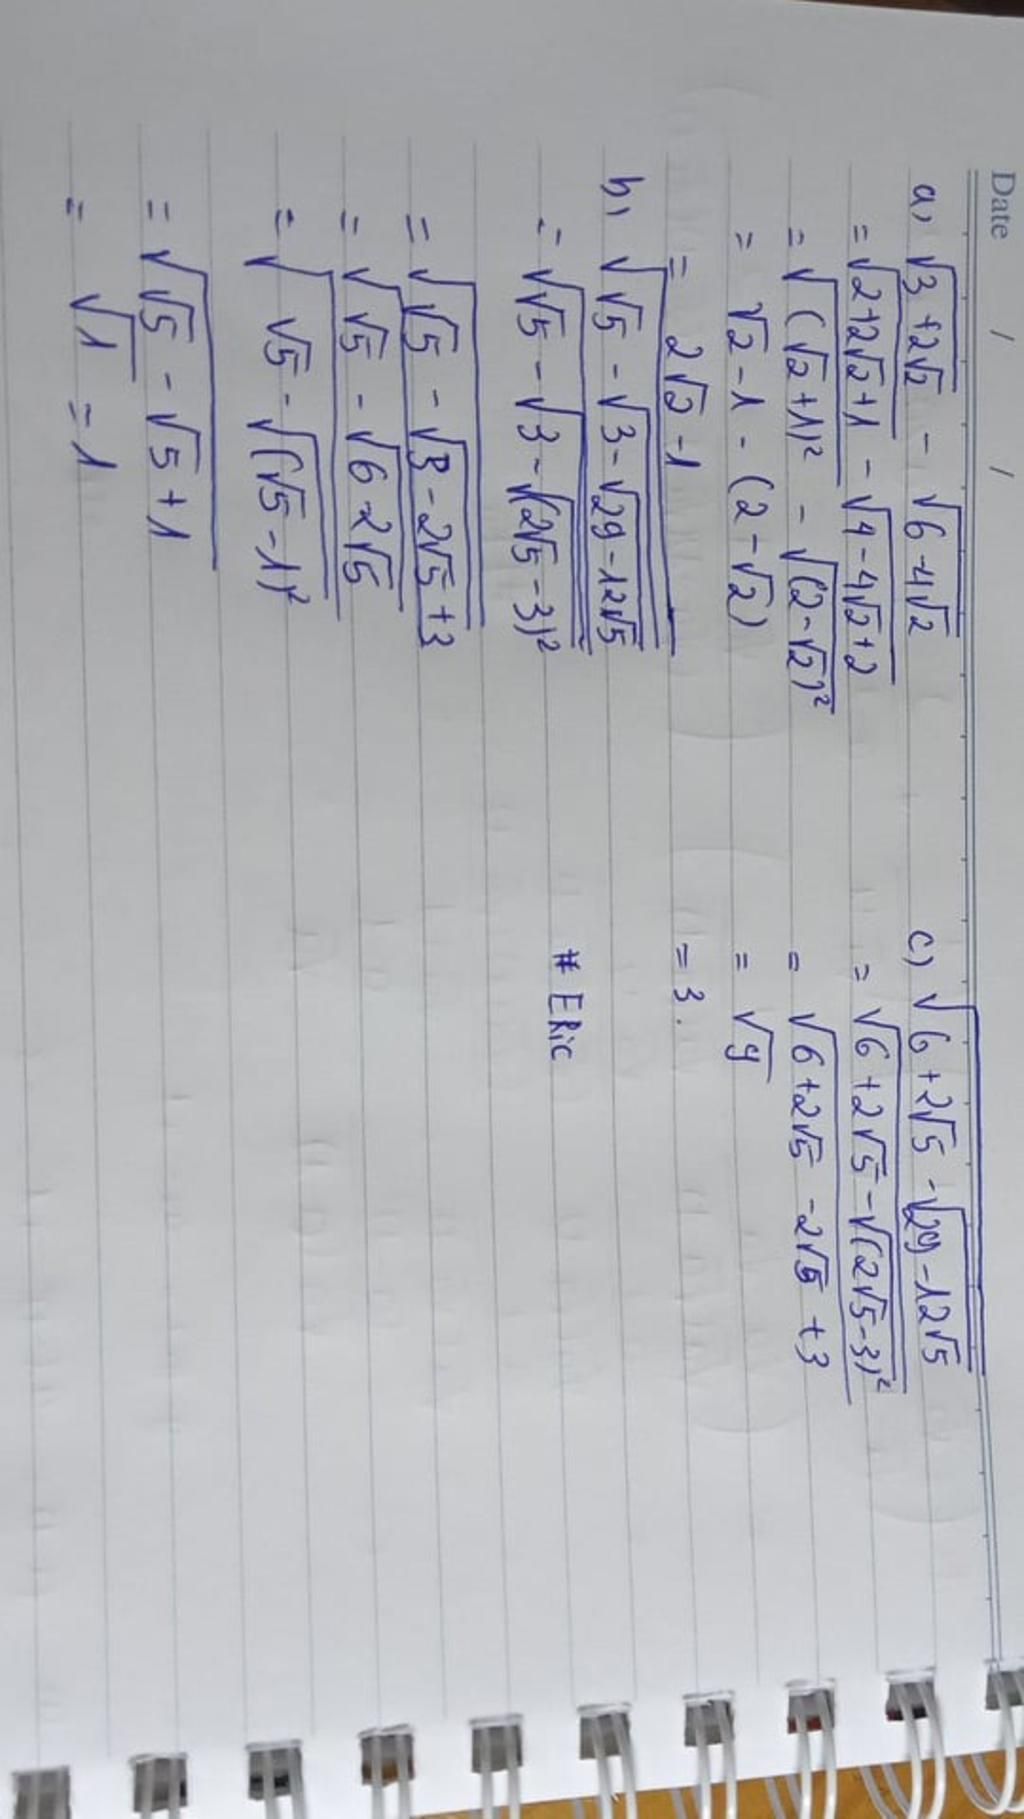 Date / /
a) √(3+2√2) - √(6-4√2)
= √(2+2√2+1) - √(4-4√2+2)
= √((√2+1)²) - √((2-√2)²)
= √2-1 - (2-√2)
= 2√2-1
b) √(√5 - √(3-√(29-12√5)))
= √(√5 - √(3-√((2√5-3)²)))
= √(√5 - √(3-2√5+3))
= √(√5 - √(6-2√5))
= √(√5 - √((√5-1)²))
= √(√5-√5+1)
= √1 = 1
c) √(6+2√5-√(29-12√5))
= √(6+2√5-√((2√5-3)²))
= √(6+2√5-2√5+3)
= √9
= 3.
# ERic